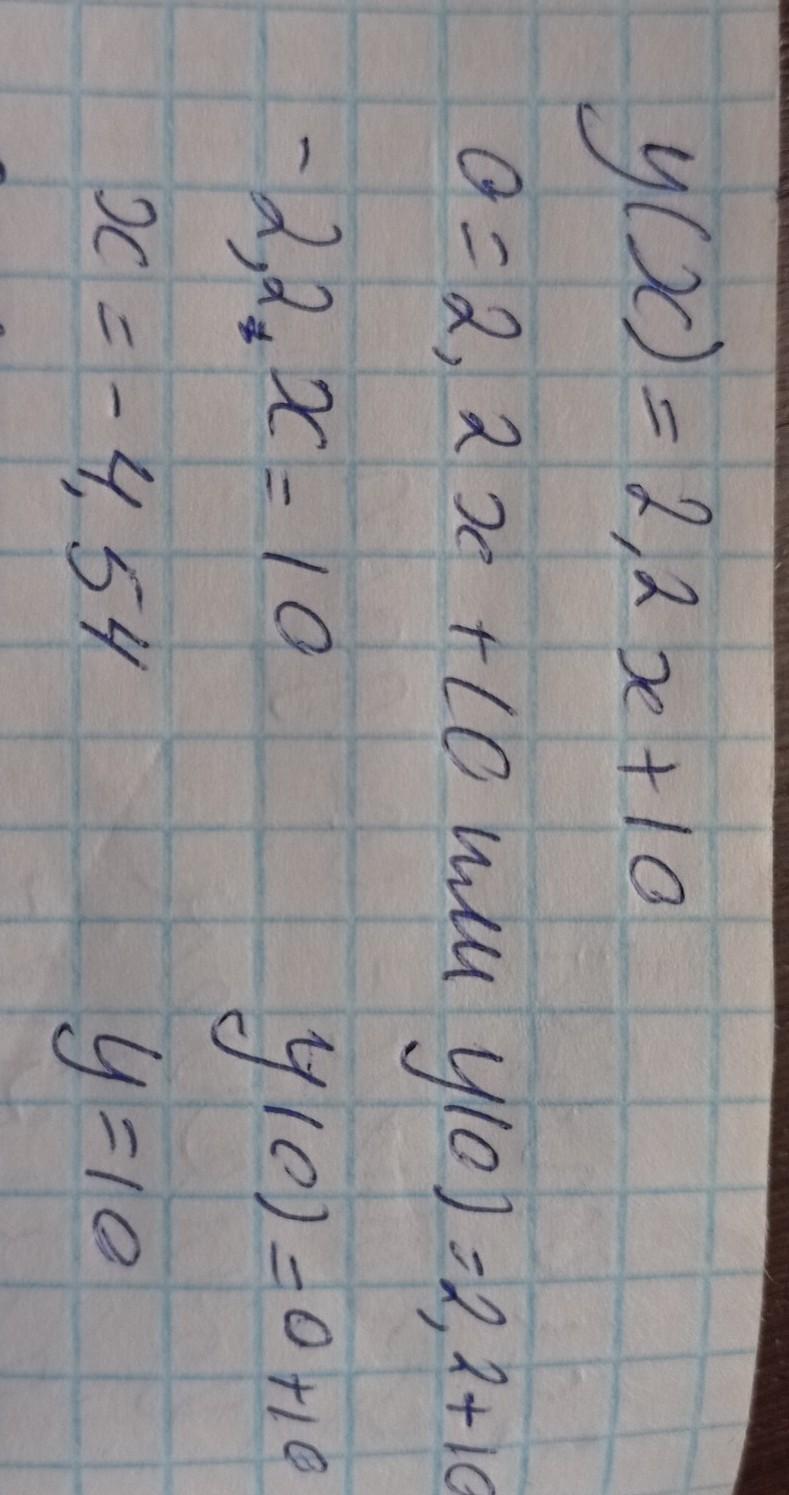 y(x) = 2,2x + 10
0 = 2,2x + 10 или y(0) = 2,2 + 10
- 2,2 x = 10 y(0) = 0 + 10
x = - 4,54 y = 10